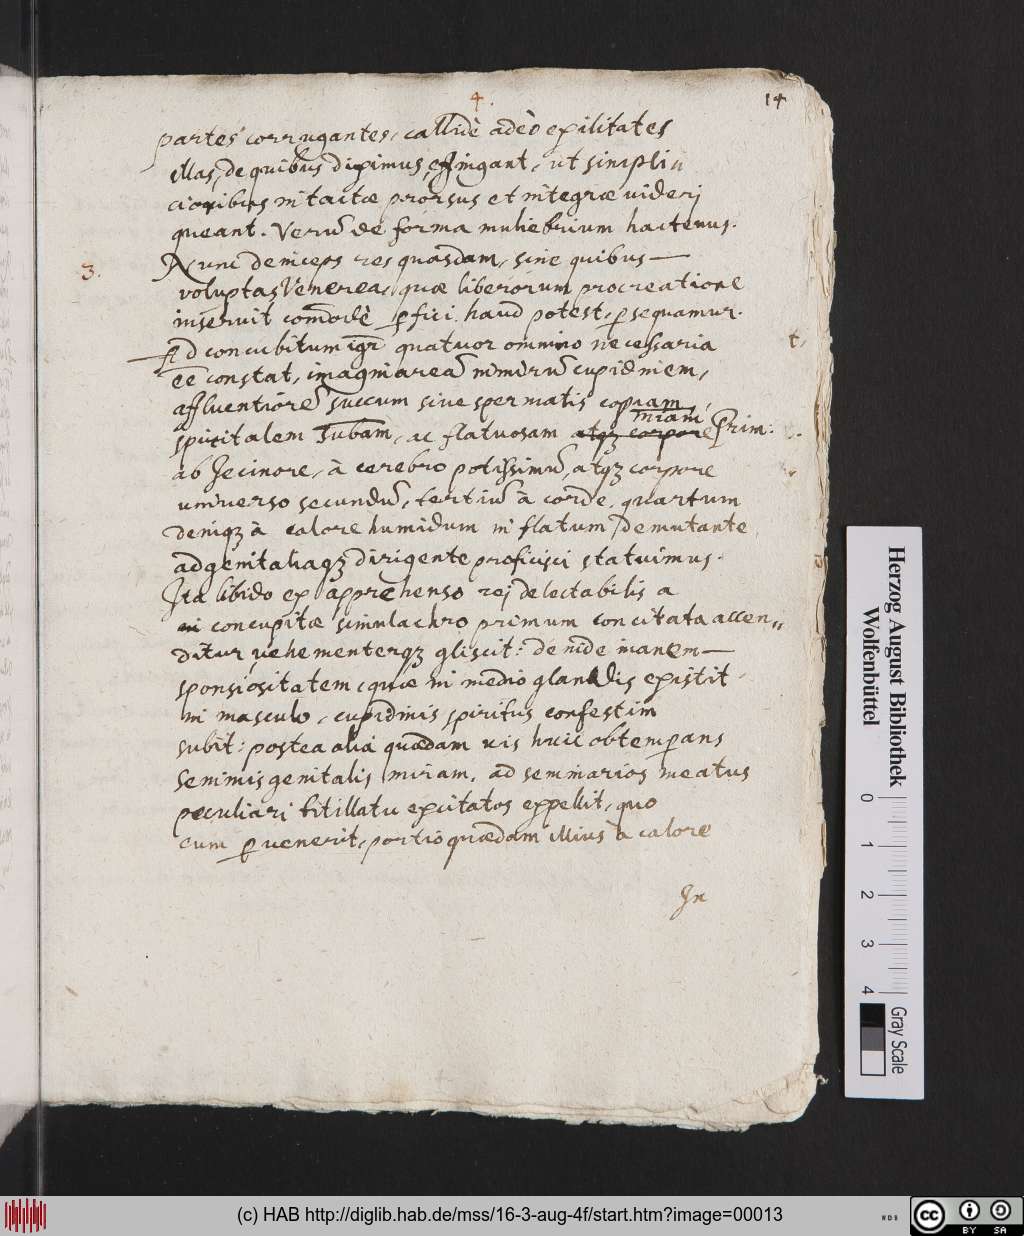 4.
14
partes corrugantes, callidè adeò exilitates
illas, de quibus diximus, effingant, ut simpli
cioribus intactæ prorsus et integræ videri
queant. Verū de forma muliebrium hactenus.
3.
Nunc deinceps res quasdam, sine quibus
voluptas Venerea, quæ liberorum procreatione
inservit comodè pfici haud potest, psequamur.
Ad concubitum igr quatuor omnino necessaria
t,
ēē constat, imaginareā nimirū cupidinem,
affluentiorē succum sive spermatis copiam,
miam
spiritalem subam, ac flatuosam atqz corpore Prim:
ab Jecinore, à cerebro potissimū, atqz corpore
universo secundū, tertiū à corde, quartum
deniqz à calore humidum in flatum demutante
ad genitaliaqz dirigente proficisci statuimus.
Ita libido ex apprehenso rej delectabilis a
in concupitæ simulachro primum concitata accen„
ditur vehementerqz gliscit: deinde inanem
spongiositatem, quæ in medio glandis existit
in masculo, cupidinis spiritus confestim
subit: postea alia quædam vis huic obtempans
seminis genitalis miram, ad seminarios meatus
peculiari titillatu excitatos expellit, quo
cum pvenerit, portio quædam illius à calore
In
Herzog August Bibliothek
Wolfenbüttel
0 1 2 3 4
Gray Scale
(c) HAB http://diglib.hab.de/mss/16-3-aug-4f/start.htm?image=00013
WDB
cc
BY SA